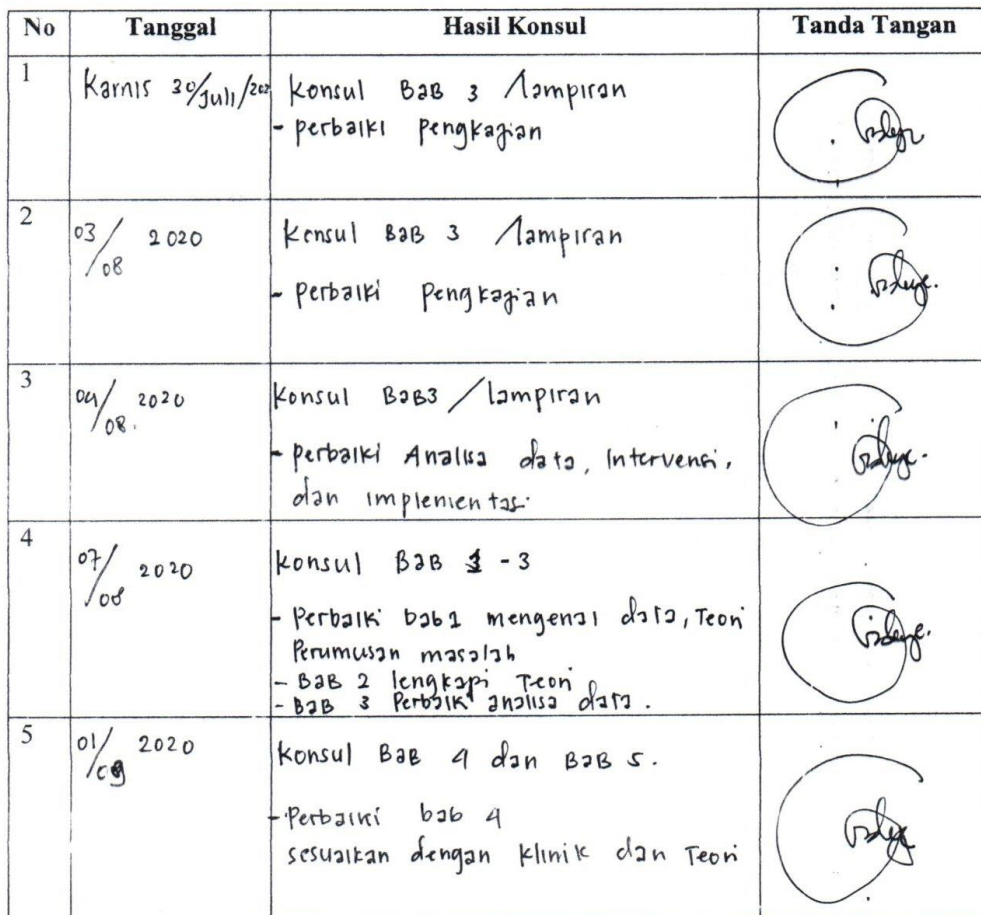 No Tanggal Hasil Konsul Tanda Tangan
1 Karnis 30/Juli/202 Konsul BaB 3 /lampiran
- perbaiki pengkajian
2 03/08 2020 Konsul BaB 3 /lampiran
- perbaiki pengkajian
3 04/08. 2020 Konsul BaB3 /lampiran
- perbaiki Analisa data, Intervensi,
dan implementas.
4 07/08 2020 Konsul BaB 1 - 3
- Perbaiki bab 1 mengenai data, Teori
Perumusan masalah
- BaB 2 lengkapi Teori
- BaB 3 Perbaik analisa data.
5 01/09 2020 Konsul BaB 4 dan BaB 5.
- Perbaiki bab 4
sesuaikan dengan klinik dan Teori